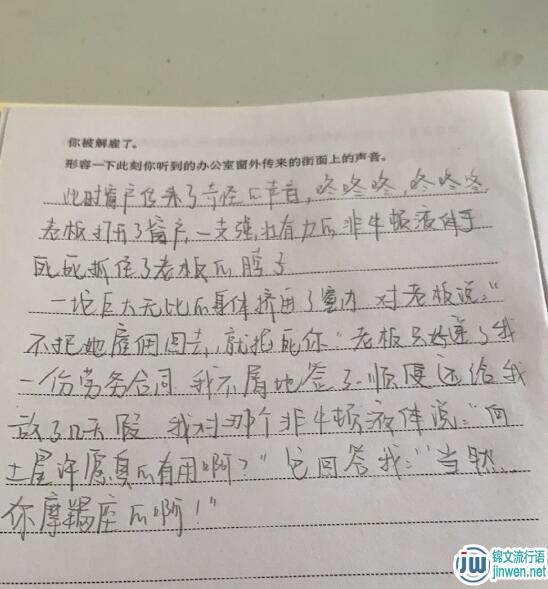 你被解雇了。
形容一下此刻你听到的办公室窗外传来的街面上的声音。
此时窗户传来了奇怪的声音，咚咚咚，咚咚咚
老板打开了窗户，一支强壮有力的非牛顿液体手
死死抓住了老板的脖子
一坨巨大无比的身体挤进了室内 对老板说："
不把她雇佣回去，就掐死你" 老板只好递了我
一份劳务合同 我不屑地签了 顺便还给我
放了几天假 我对那个非牛顿液体说："向
土星许愿真的有用啊？" 它回答我："当然
你摩羯座的啊！"
锦文流行语
jinwen.net
JW